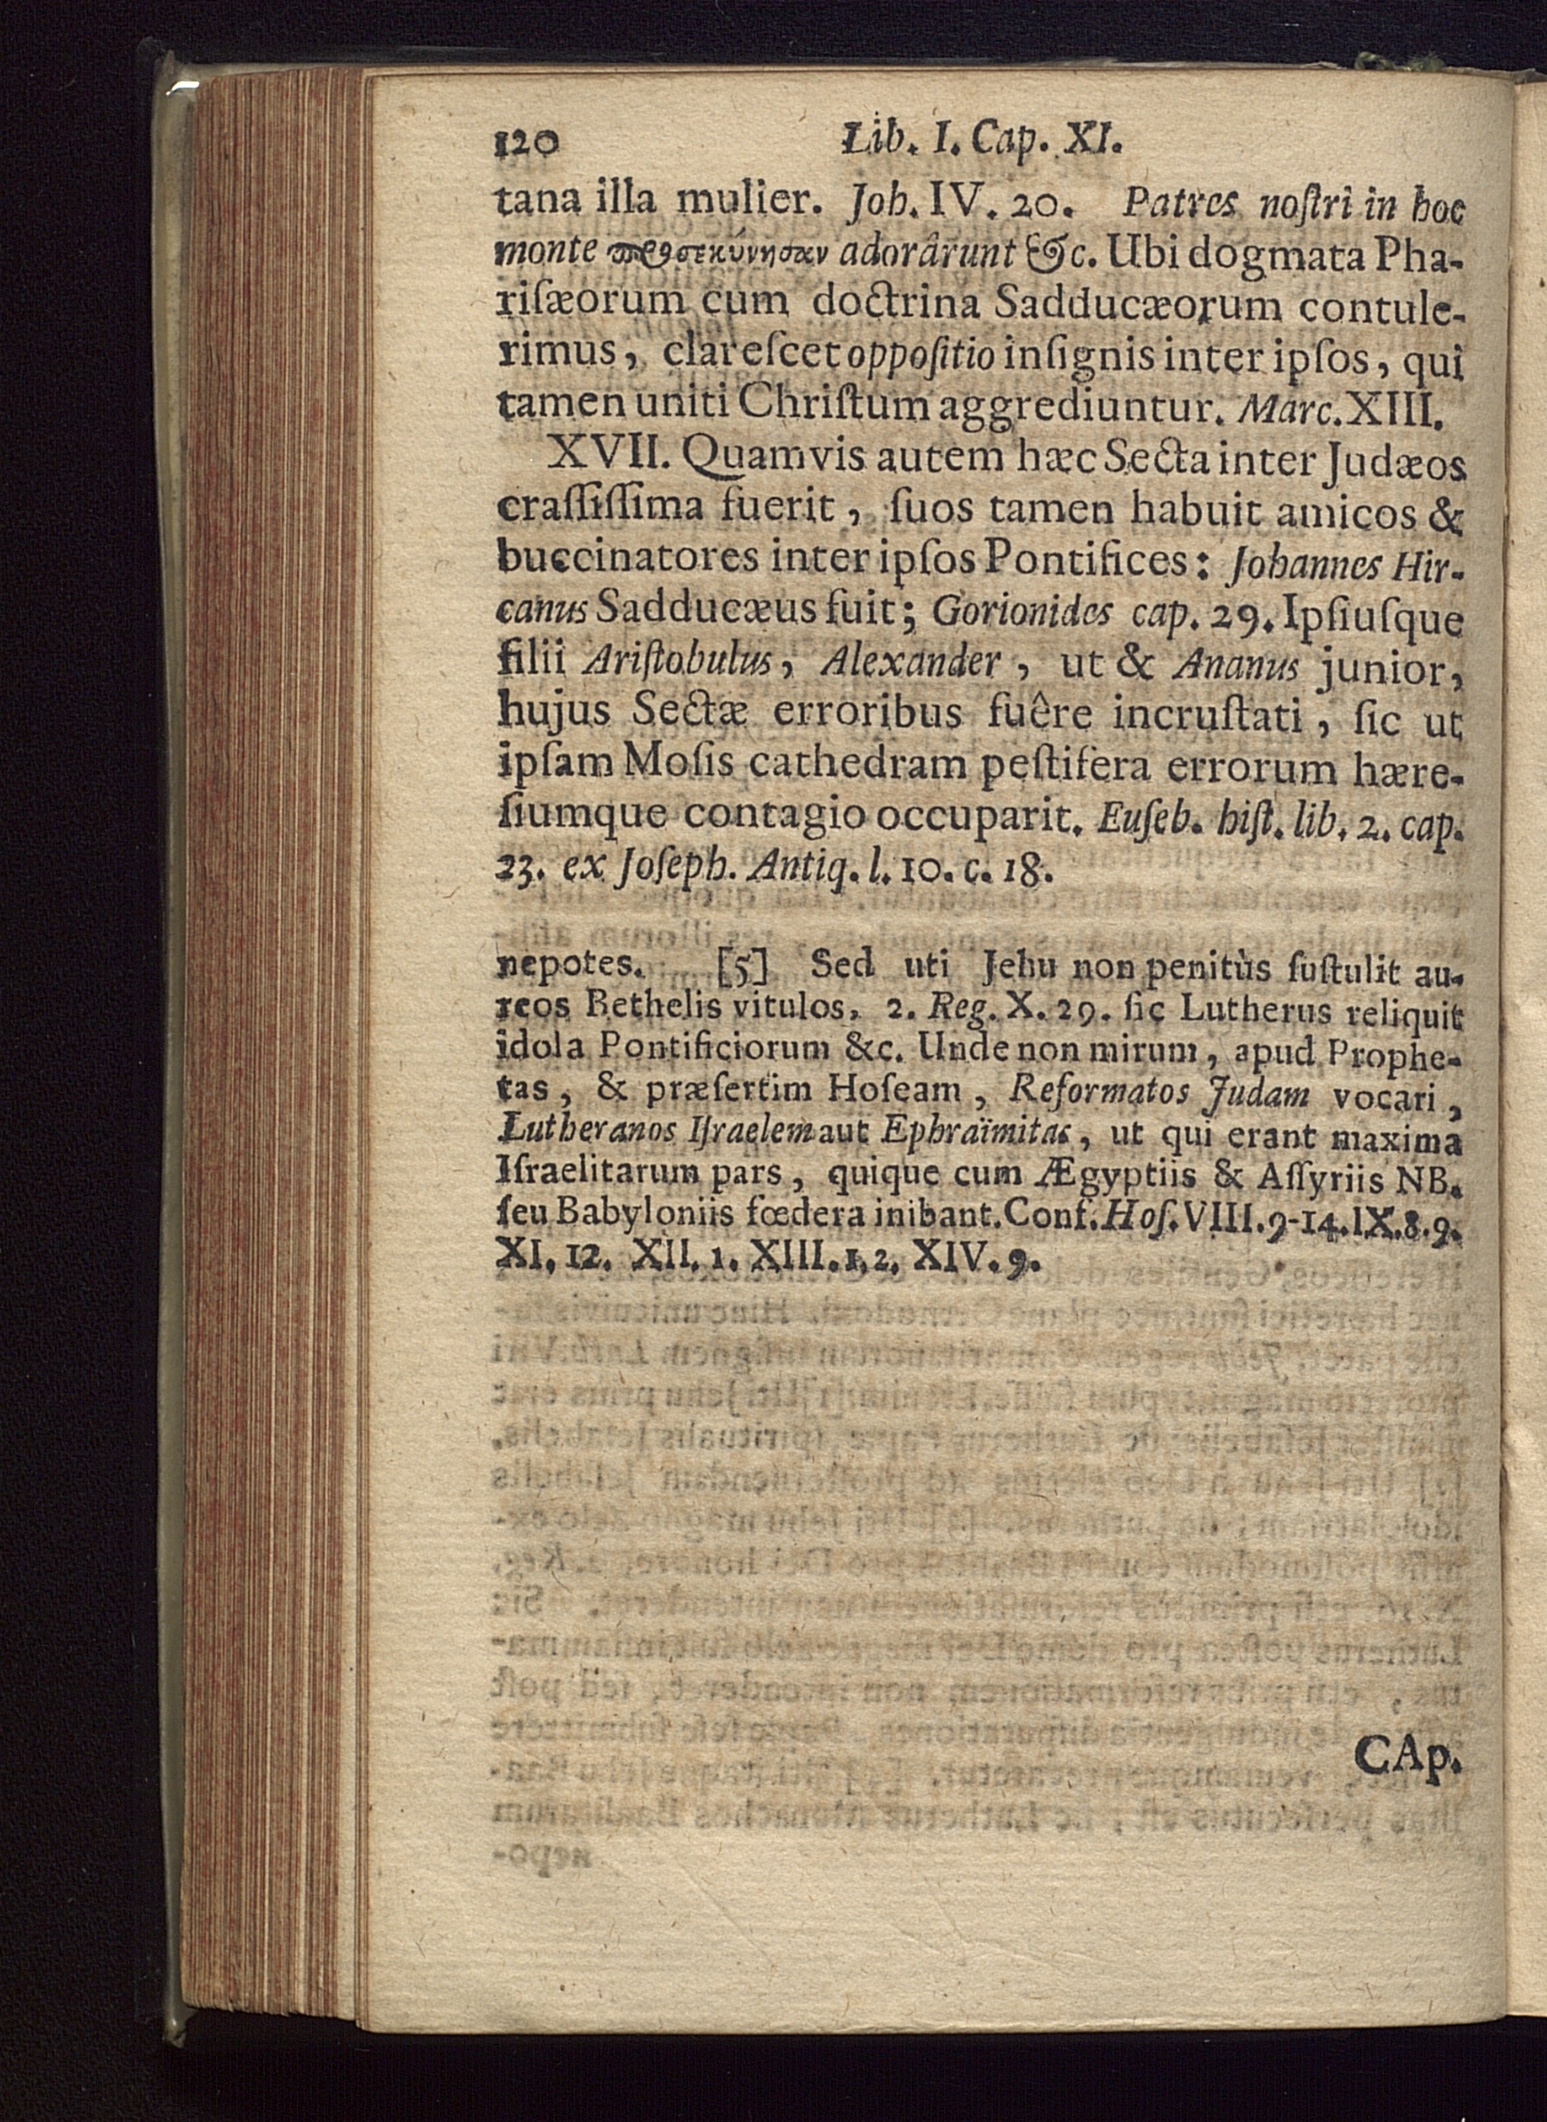 120 Lib. I. Cap. XI.
tana illa mulier. Joh. IV. 20. Patres noſtri in hoc
monte προσεκύνησαν adorârunt &c. Ubi dogmata Pha-
riſæorum cum doctrina Sadducæorum contule-
rimus, clareſcet oppoſitio inſignis inter ipſos, qui
tamen uniti Chriſtum aggrediuntur. Marc. XIII.
XVII. Quamvis autem hæc Secta inter Judæos
craſſiſſima fuerit, ſuos tamen habuit amicos &
buccinatores inter ipſos Pontifices: Johannes Hir-
canus Sadducæus fuit; Gorionides cap. 29. Ipſiuſque
filii Ariſtobulus, Alexander, ut & Ananus junior,
hujus Sectæ erroribus fuêre incruſtati, ſic ut
ipſam Moſis cathedram peſtifera errorum hære-
ſiumque contagio occuparit. Euſeb. hiſt. lib. 2. cap.
23. ex Joſeph. Antiq. l. 10. c. 18.
nepotes. [5] Sed uti Jehu non penitùs ſuſtulit au-
reos Bethelis vitulos, 2. Reg. X. 29. ſic Lutherus reliquit
idola Pontificiorum &c. Unde non mirum, apud Prophe-
tas, & præſertim Hoſeam, Reformatos Judam vocari,
Lutheranos Iſraelem aut Ephraïmitas, ut qui erant maxima
Iſraelitarum pars, quique cum Ægyptiis & Aſſyriis NB.
ſeu Babyloniis fœdera inibant. Conf. Hoſ. VIII. 9-14. IX. 8. 9.
XI. 12. XII. 1. XIII. 1, 2. XIV. 9.
CAp.